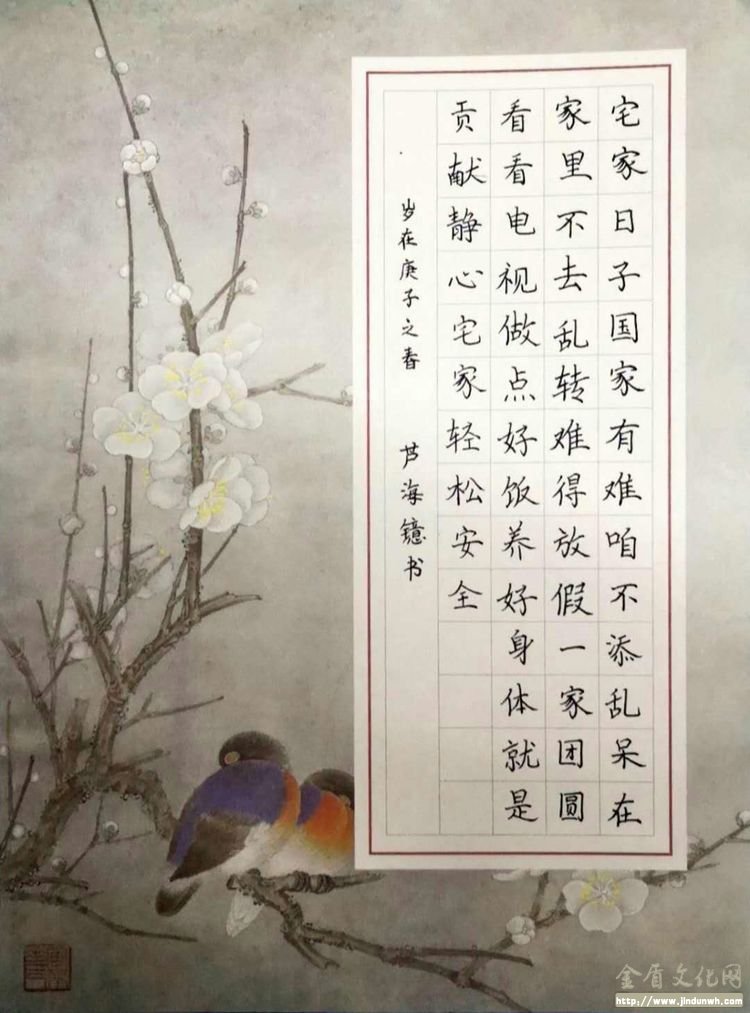 宅家日子国家有难咱不添乱呆在
家里不去乱转难得放假一家团圆
看看电视做点好饭养好身体就是
贡献静心宅家轻松安全
岁在庚子之春 芦海镱书
金盾文化网
http://www.jindunwh.com